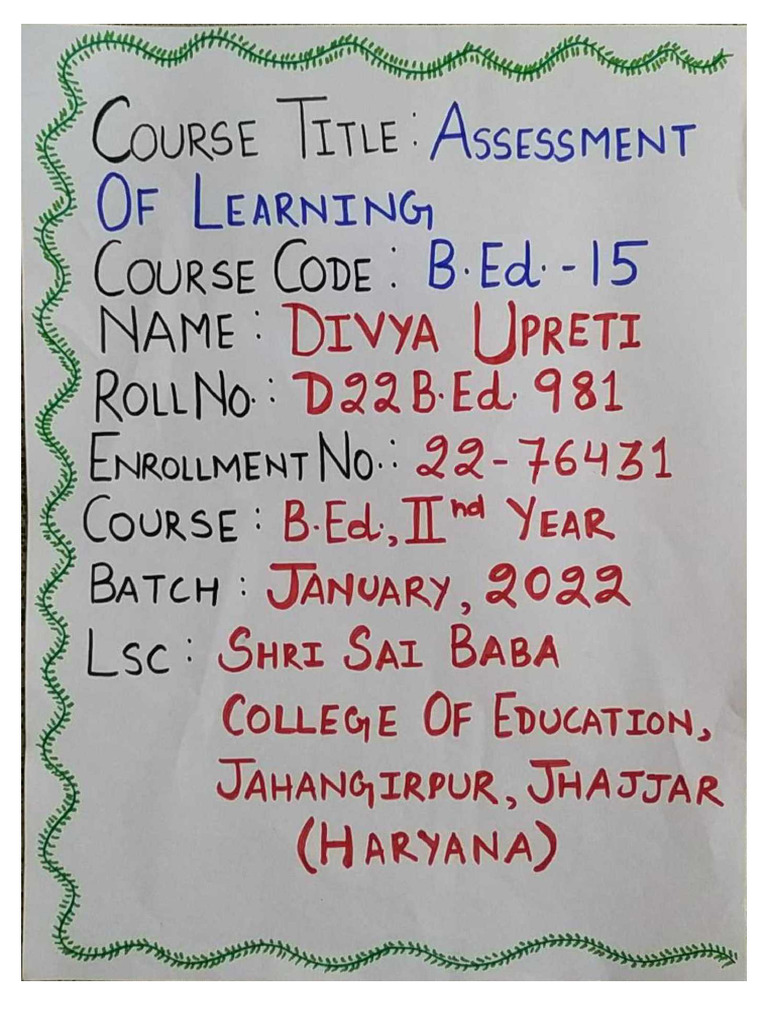 COURSE TITLE: ASSESSMENT
OF LEARNING
COURSE CODE: B.Ed.-15
NAME: DIVYA UPRETI
ROLL No.: D22 B.Ed. 981
ENROLLMENT No.: 22-76431
COURSE: B.Ed., IInd YEAR
BATCH: JANUARY, 2022
LSC: SHRI SAI BABA
COLLEGE OF EDUCATION,
JAHANGIRPUR, JHAJJAR
(HARYANA)